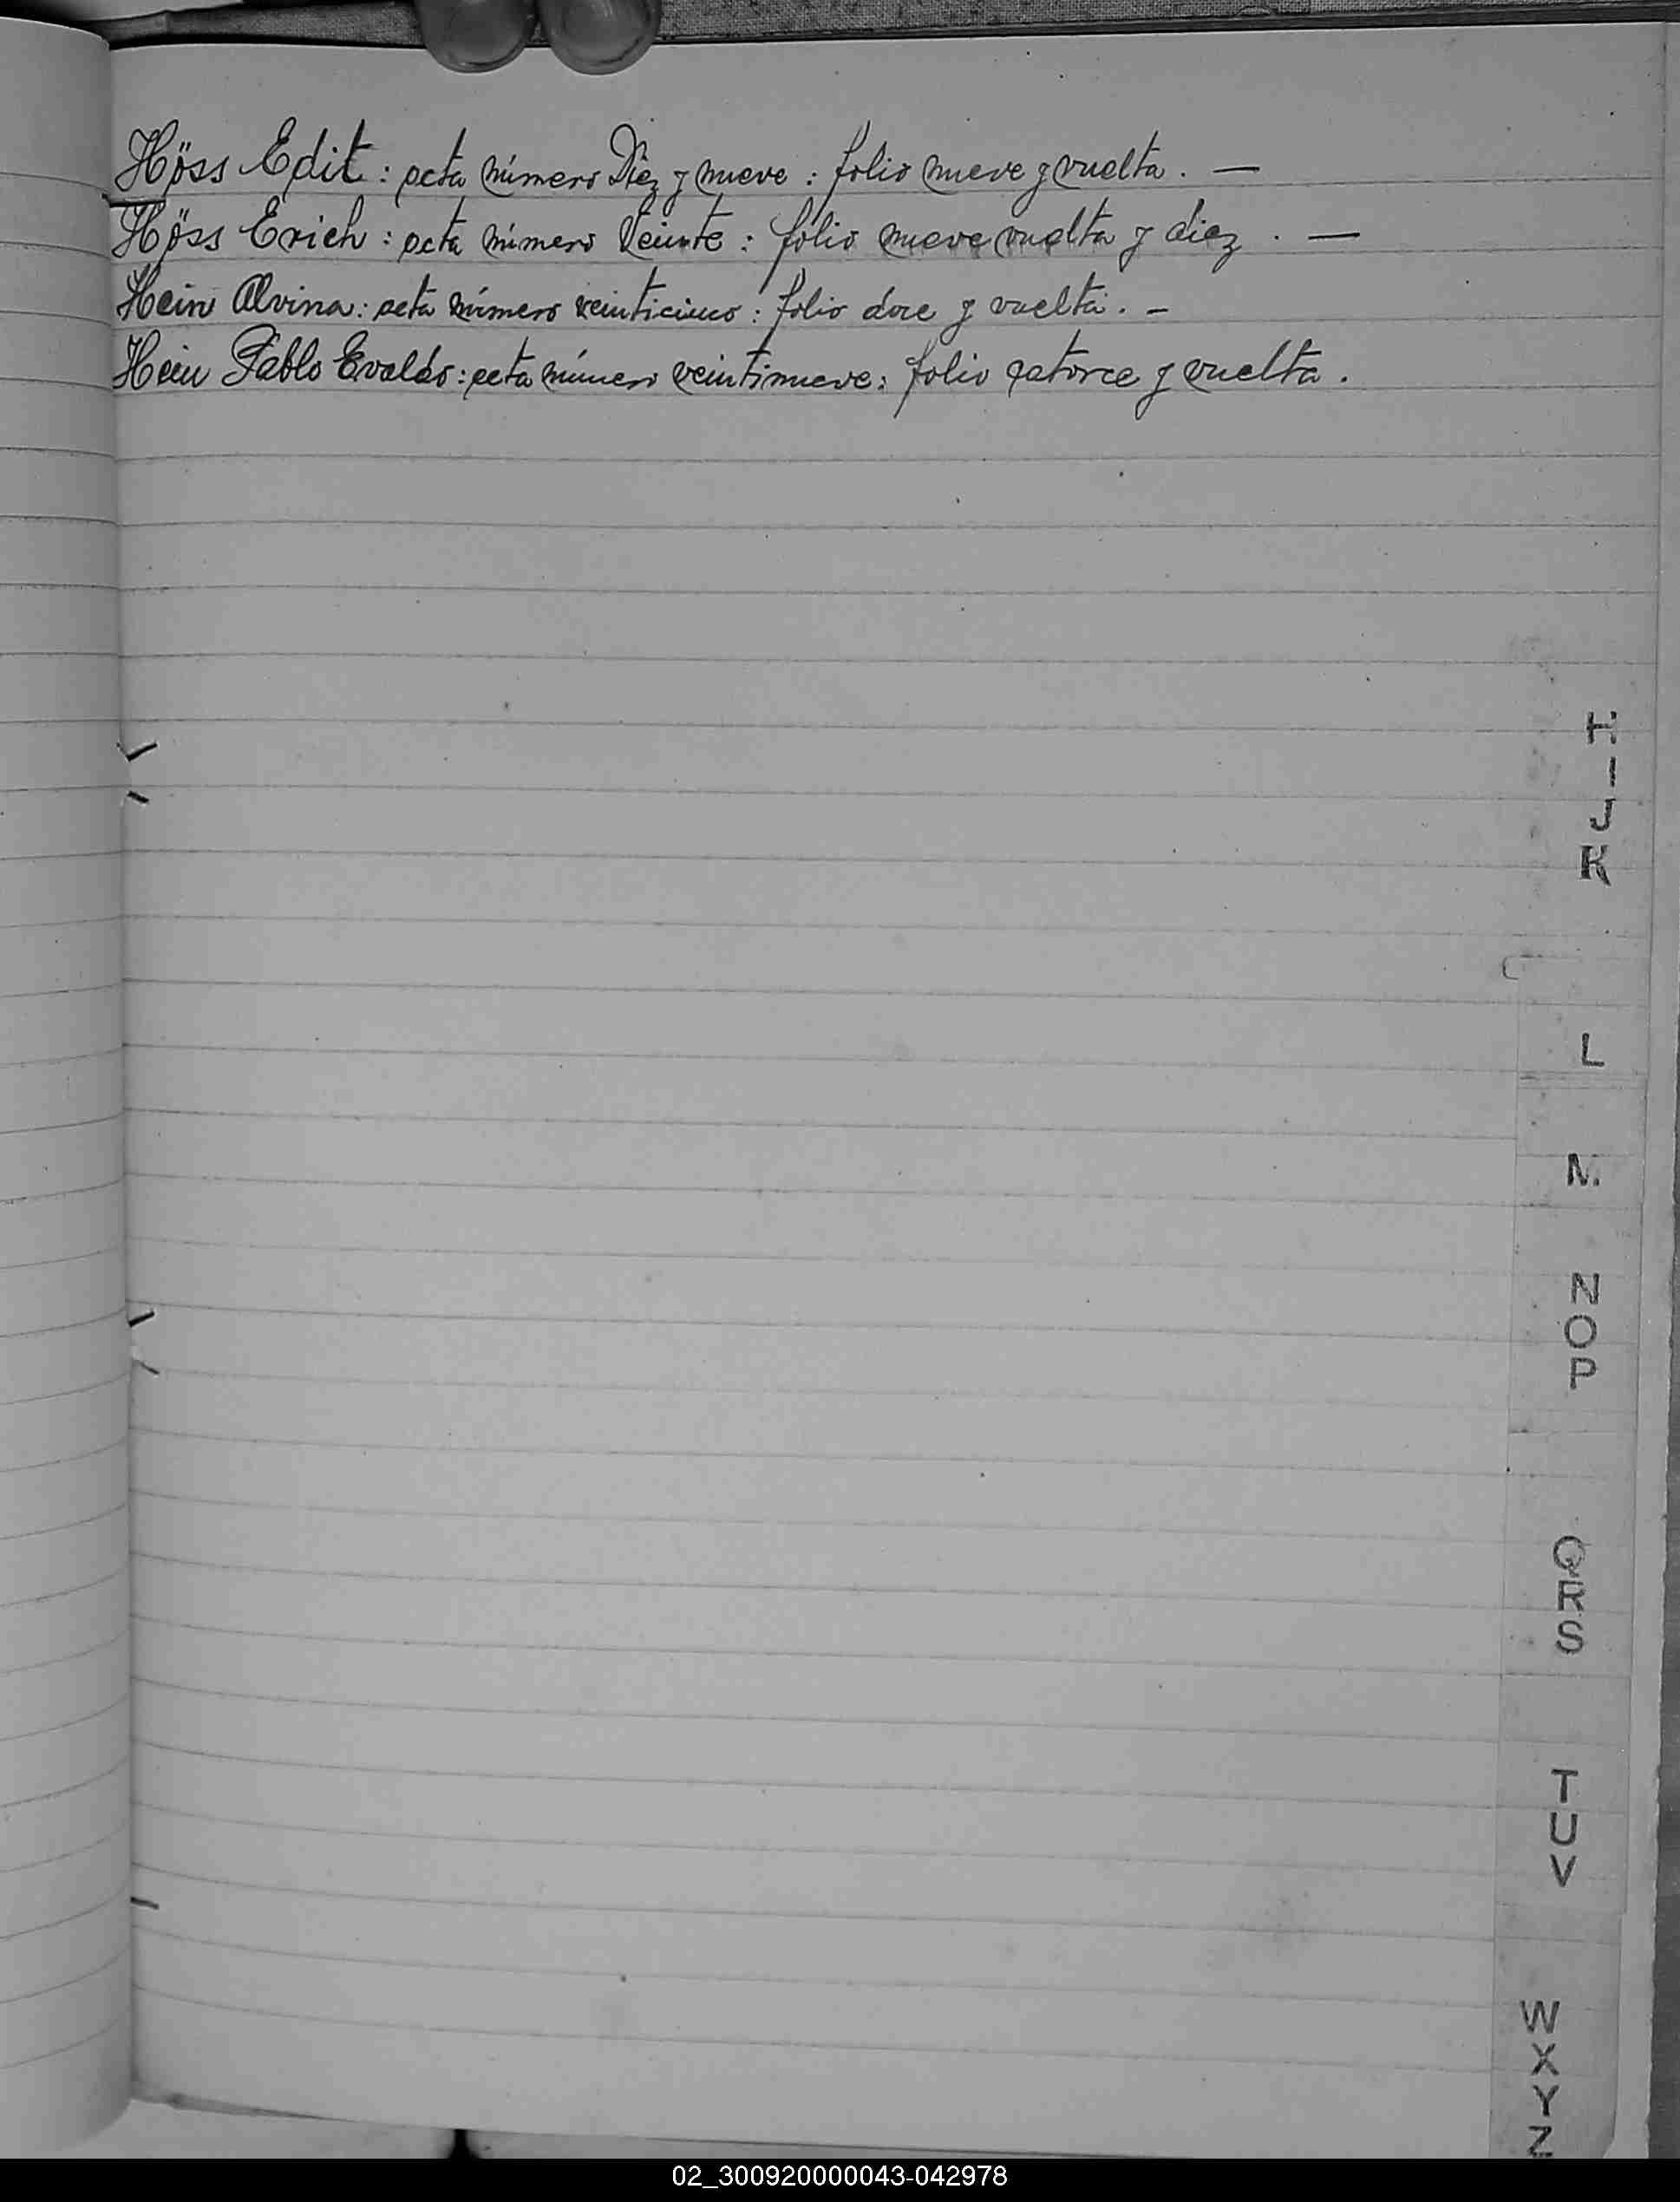 Höss Edit: acta número Diez y nueve: folio nueve y vuelta. —
Höss Erich: acta número Veinte: folio nueve vuelta y diez. —
Hein Alvina: acta número veinticinco: folio doce y vuelta. -
Hein Pablo Evaldo: acta número veintinueve: folio catorce y vuelta.
H
I
J
K
L
M
N
O
P
Q
R
S
T
U
V
W
X
Y
Z
02_300920000043-042978